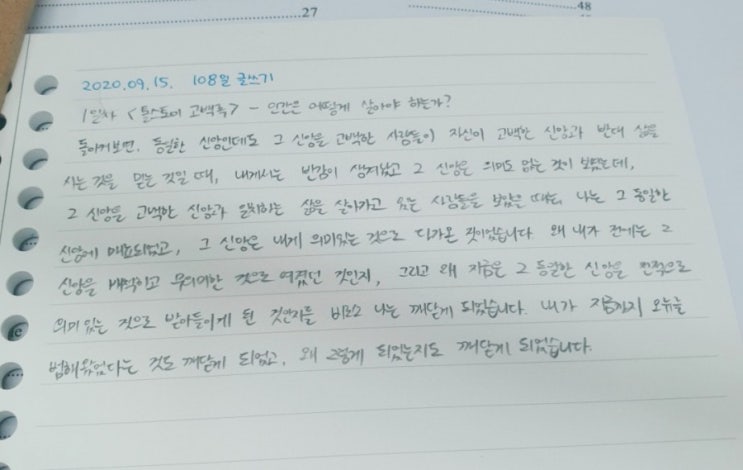 27
48
2020.09.15. 108일 글쓰기
1일차 <톨스토이 고백록> - 인간은 어떻게 살아야 하는가?
돌아켜보면, 동일한 신앙인데도 그 신앙을 고백한 사람들이 자신이 고백한 신앙과 반대 삶을
사는 것을 믿는 것일 때, 내게서는 반감이 생겨났고 그 신앙은 의미도 없는 것이 보였는데,
그 신앙을 고백한 신앙과 일치하는 삶을 살아가고 있는 사람들을 보았을 때는, 나는 그 동일한
신앙에 매료되었고, 그 신앙은 내게 의미있는 것으로 다가온 것이었습니다 왜 내가 전에는 그
신앙을 배척하고 무의미한 것으로 여겼던 것인지, 그리고 왜 지금은 그 동일한 신앙을 전적으로
의미 있는 것으로 받아들이게 된 것인지를 비로소 나는 깨닫게 되었습니다. 내가 지금까지 오류를
범해왔었다는 것도 깨닫게 되었고, 왜 그렇게 되었는지도 깨닫게 되었습니다.